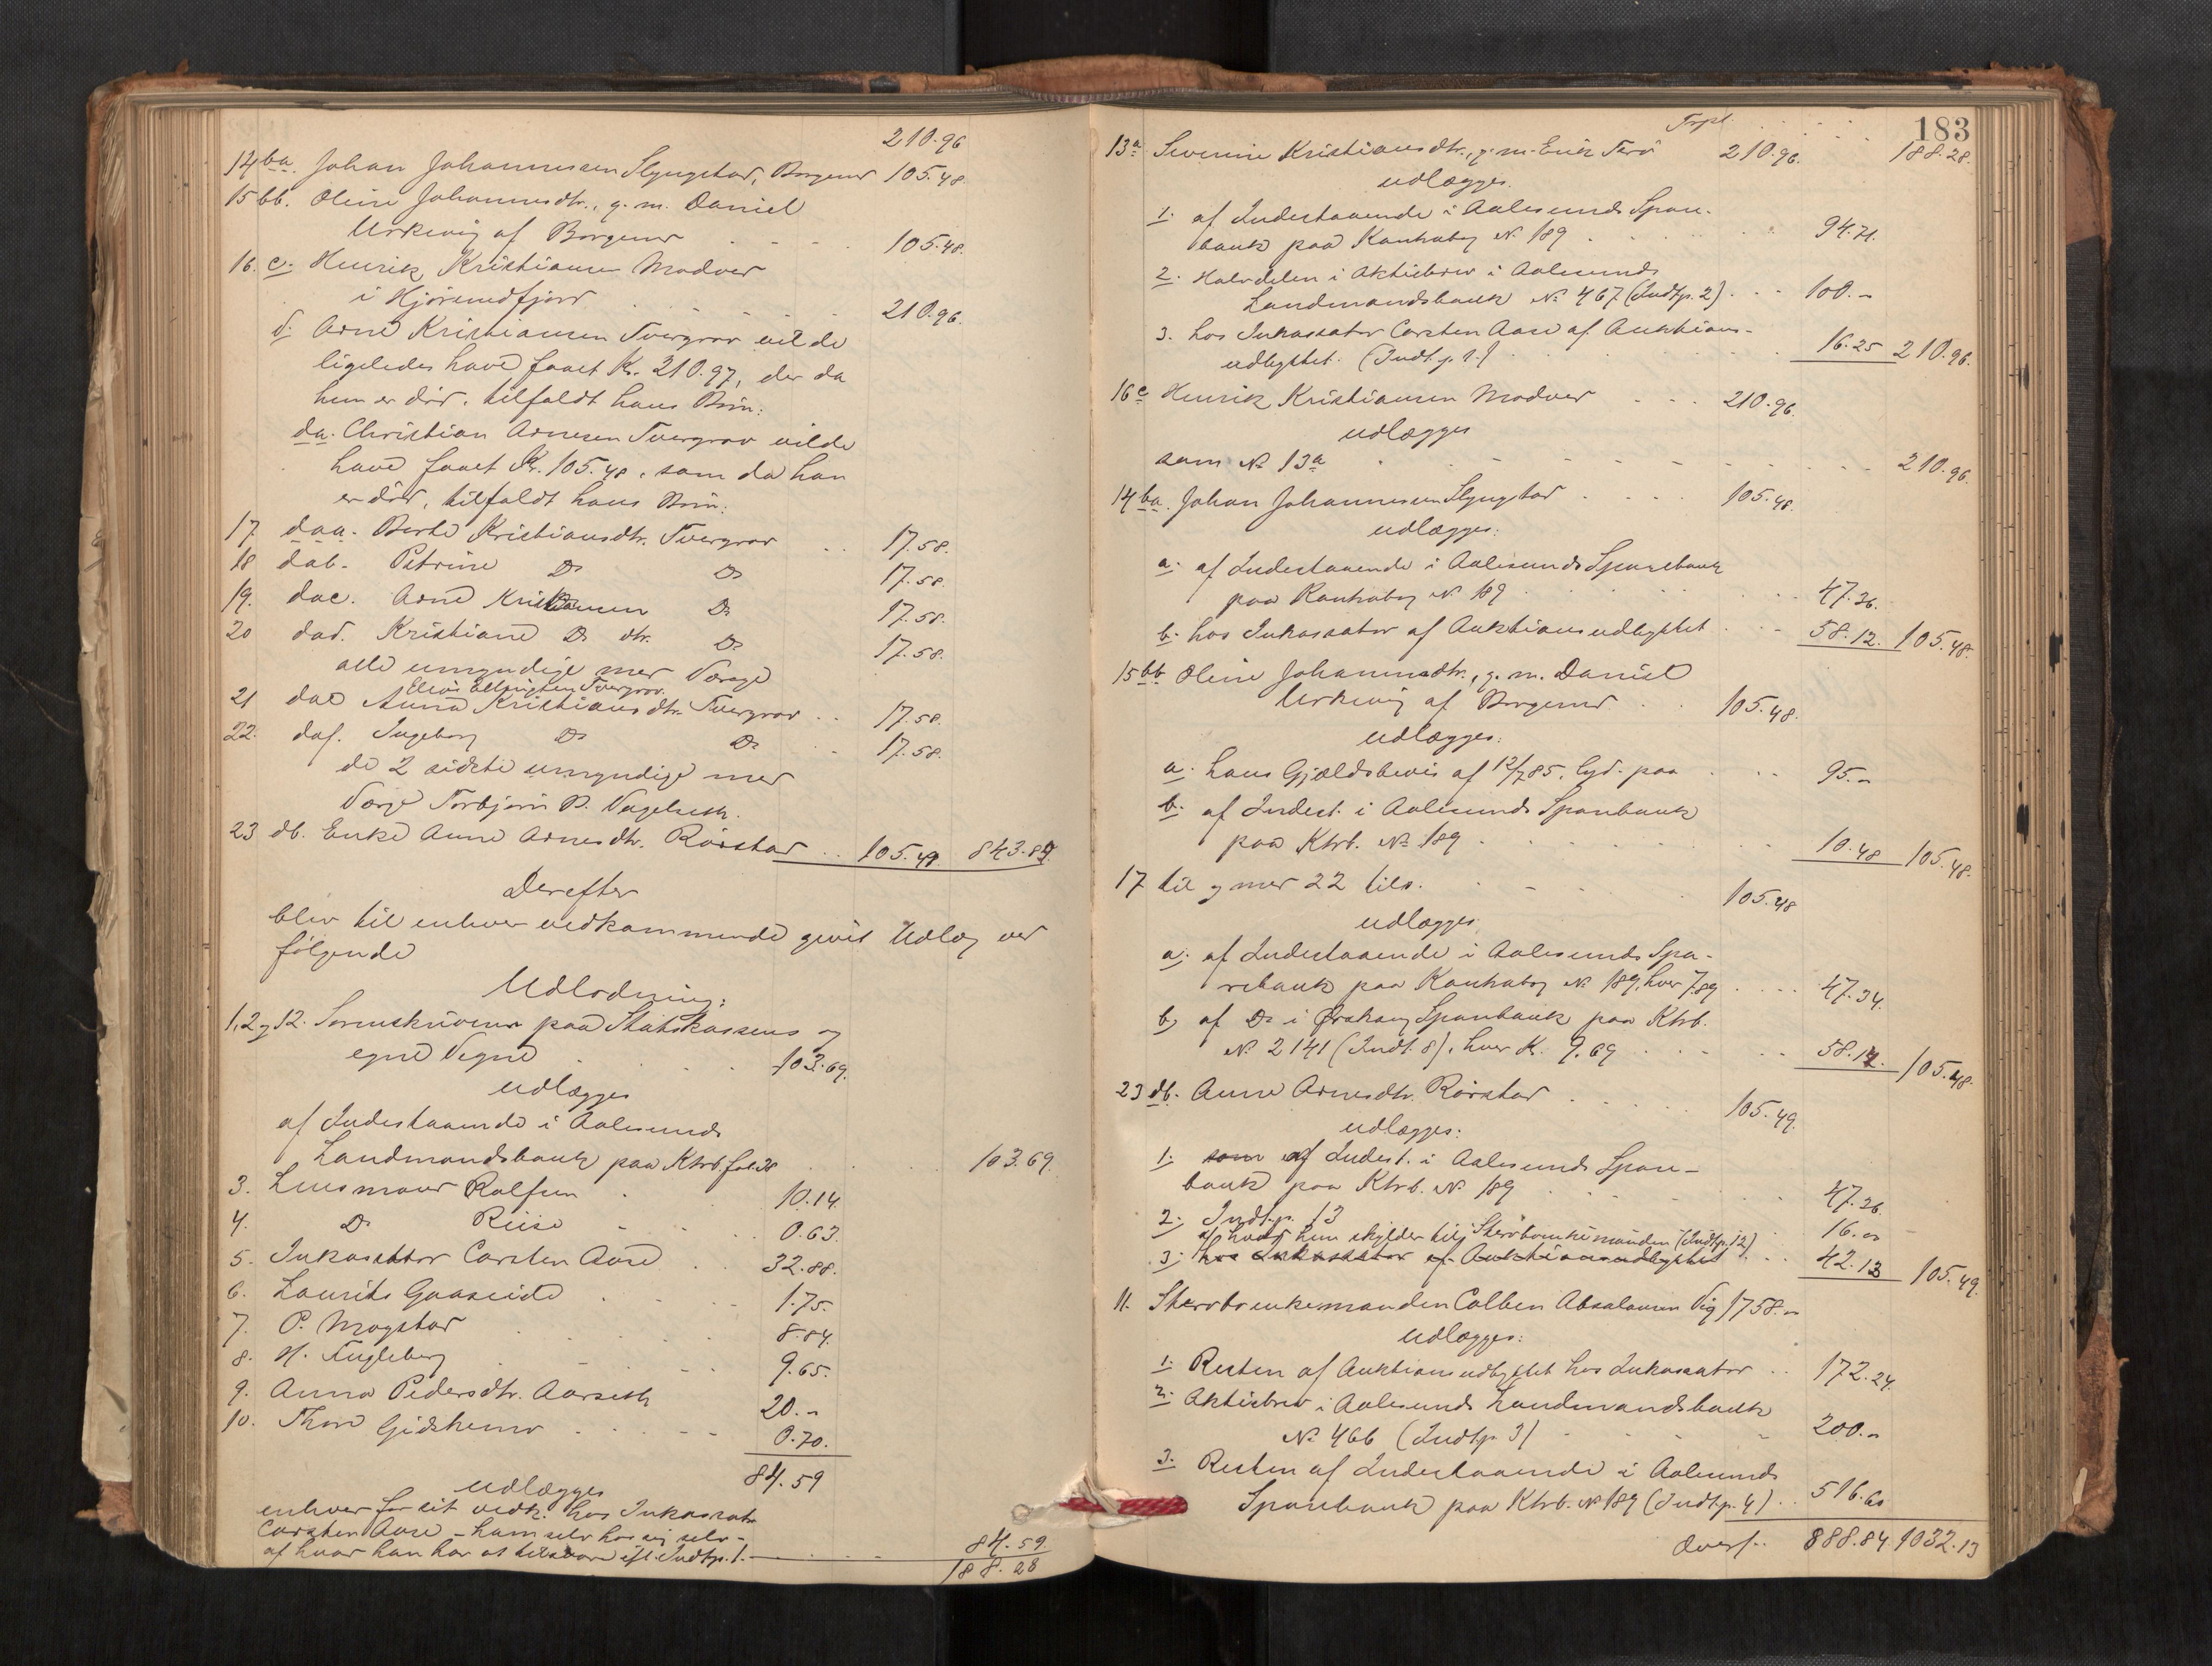 210.96
14 ba. Johan Johannessen Slyngstad, Borgund 105.48.
15 bb. Oline Johannesdtr., g. m. Daniel
Urkevig af Borgund 105.48.
16. c. Henrik Kristiansen Modvær
i Hjørundfjord 210.96.
d. Arne Kristiansen Tvergrov vilde
ligeledes have faaet Kr. 210.97, der da
hun er død, tilfaldt hans Børn:
da. Christian Arnesen Tvergrov vilde
have faaet Kr. 105.48, som da han
er død, tilfaldt hans Børn:
17 daa. Berte Kristiansdtr. Tvergrov 17.58.
18 dab. Petrine Do Do 17.58.
19. dac. Arne Kristiansen Do 17.58.
20 dad. Kristiane Do dtr. Do 17.58.
alle umyndige med Værge
Elias Tvergrov.
21 dae Anna Kristiansdtr. Tvergrov 17.58.
22. daf. Ingeborg Do Do 17.58.
de 2 sidste umyndige med
Værge Torbjørn P.
23 db. Enke Anne Arnesdtr. Rørstad 105.49 843.89
Derefter
blev til enhver vedkommende givet Udlæg ved
følgende
Udlodning:
1, 2 og 12. Sorenskriveren paa Statskassens og
egne Vegne 103.69.
udlægges
af Indestaaende i Aalesunds
Landmandsbank paa Ktrb. fol. 38 103.69.
3. Lensmand Rolfsen 10.14.
4. Do Riise 0.63.
5. Inkassator Carsten Aase 32.88.
6. Laurits Gaaseide 1.75.
7. P. Mogstad 8.84.
8. H. Fugleberg 9.65.
9. Anna Pedersdtr. Aarseth 20.-
10. Thore Gidskemo 0.70.
84.59
udlægges
enhver for sit vedk. hos Inkassator
Carsten Aase - ham selv hos sig selv -
af hvad han har at tilsvare ifl. Indtp. 1. 84.59
188.28
183
Trpt. 188.28.
13a Severine Kristiansdtr., g. m. Erik Terø 210.96.
udlægges.
1. af Indestaaende i Aalesunds Spare-
bank paa Kontrabog No 189 94.71.
2. Halvdelen i Aktiebrev i Aalesunds
Landmandsbank No 467 (Indtp. 2) 100.-
3. hos Inkassator Carsten Aase af Auktions-
udbyttet. (Indt. p. 1.) 16.25 210.96.
16c Henrik Kristiansen Modvær 210.96.
udlægges
som No 13a 210.96.
14 ba. Johan Johannessen Slyngstad 105.48.
udlægges:
a. af Indestaaende i Aalesunds Sparebank
paa Kontrabog No 189 47.36.
b. hos Inkassator af Auktionsudbyttet 58.12. 105.48.
15 bb Oline Johannesdtr., g. m. Daniel
Urkevig af Borgund 105.48.
udlægges:
a. hans Gjældsbevis af 12/7 85, lyd. paa 95.-
b. af Indest. i Aalesunds Sparebank
paa Ktrb. No 189 10.48 105.48.
17 til og med 22 tils. 105.48
udlægges
a. af Indestaaende i Aalesunds Spa-
rebank paa Kontrabog No 189, hver 7.89 47.34.
b. af Do i Ørskoug Sparebank paa Ktrb.
No 2141 (Indt. 8), hver Kr. 9.69 58.14. 105.48.
23 db. Anne Arnesdtr. Rørstad 105.49.
udlægges:
1. som af Indest. i Aalesunds Spare-
bank paa Ktrb. No 189 47.36.
2. Indtp. 13 16.-
af hvad hun skylder til Stervboenkemanden (Indtp. 12)
3. hos Inkassator af Auktionsudbyttet 42.13 105.49.
11. Stervboenkemanden Colben Absalonsen Vig 1758.-
udlægges:
1. Resten af Auktionsudbyttet hos Inkassator 172.24.
2. Aktiebrev i Aalesunds Landmandsbank
No 466 (Indtp. 3) 200.-
3. Resten af Indestaaende i Aalesunds
Sparebank paa Ktrb. No 189 (Indtp. 4) 516.60
Overf. 888.84. 1032.13